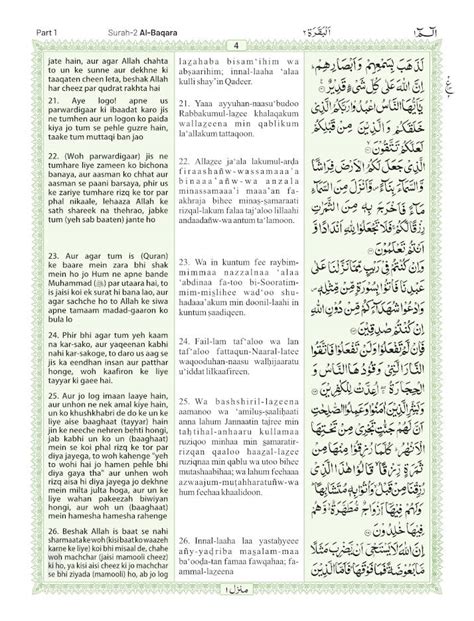 Part 1
Surah-2 Al-Baqara
اَلْبَقَرَة ٢
الٓمّٓ ١
4
jate hain, aur agar Allah chahta
to un ke sunne aur dekhne ki
taaqaten cheen leta, beshak Allah
har cheez par qudrat rakhta hai
21. Aye logo! apne us
parwardigaar ki ibaadat karo jis
ne tumhen aur un logon ko paida
kiya jo tum se pehle guzre hain,
taake tum muttaqi ban jao
22. (Woh parwardigaar) jis ne
tumhare liye zameen ko bichona
banaya, aur aasman ko chhat aur
aasman se paani barsaya, phir us
ke zariye tumhare rizq ke tor par
phal nikaale, lehaaza Allah ke
sath shareek na thehrao, jabke
tum (yeh sab baaten) jante ho
23. Aur agar tum is (Quran)
ke baare mein zara bhi shak
mein ho jo Hum ne apne bande
Muhammad (ﷺ) par utaara hai, to
is jaisi koi ek surat hi bana lao, aur
agar sachche ho to Allah ke siwa
apne tamaam madad-gaaron ko
bula lo
24. Phir bhi agar tum yeh kaam
na kar-sako, aur yaqeenan kabhi
nahi kar-sakoge, to daro us aag se
jis ka eendhan insan aur patthar
honge, woh kaafiron ke liye
tayyar ki gaee hai.
25. Aur jo log imaan laaye hain,
aur unhon ne nek amal kiye hain,
un ko khushkhabri de do ke un ke
liye aise baaghaat (tayyar) hain
jin ke neeche nehren behti hongi,
jab kabhi un ko un (baaghaat)
mein se koi phal rizq ke tor par
diya jayega, to woh kahenge "yeh
to wohi hai jo hamen pehle bhi
diya gaya tha" aur unhen woh
rizq aisa hi diya jayega jo dekhne
mein milta julta hoga, aur un ke
liye wahan pakeezah biwiyan
hongi, aur woh un (baaghaat)
mein hamesha hamesha rahenge
26. Beshak Allah is baat se nahi
sharmaata ke woh (kisi baat ko waazeh
karne ke liye) koi bhi misaal de, chahe
woh machchar (jaisi mamooli cheez)
ki ho, ya kisi aisi cheez ki jo machchar
se bhi ziyada (mamooli) ho, ab jo log
lazahaba bisam'ihim wa
abṣaarihim; innal-laaha 'alaa
kulli shay'in Qadeer.
21. Yaaa ayyuhan-naasu'budoo
Rabbakumul-lazee khalaqakum
wallazeena min qablikum
la'allakum tattaqoon.
22. Allazee ja'ala lakumul-arḍa
firaashañw-wassamaaa'a
binaaa'añw-wa anzala
minassamaaa'i maaa'an fa-
akhraja bihee minaṣ-ṣamaraati
rizqal-lakum falaa taj'aloo lillaahi
andaadañw-wa antum ta'lamoon.
23. Wa in kuntum fee raybim-
mimmaa nazzalnaa 'alaa
'abdinaa fa-too bi-Sooratim-
mim-mislihee wad'oo shu-
hadaaa'akum min doonil-laahi in
kuntum ṣaadiqeen.
24. Fail-lam taf'aloo wa lan
taf'aloo fattaqun-Naaral-latee
waqooduhan-naasu walḥijaaratu
u'iddat lilkaafireen.
25. Wa bashshiril-lazeena
aamanoo wa 'amiluṣ-ṣaaliḥaati
anna lahum Jannaatin tajree min
taḥtihal-anhaaru kullamaa
ruziqoo minhaa min ṣamaratir-
rizqan qaaloo haazal-lazee
ruziqnaa min qablu wa utoo bihee
mutashaabihaa; wa lahum feehaaa
azwaajum-muṭahharatuñw-wa
hum feehaa khaalidoon.
26. Innal-laaha laa yastaḥyeee
añy-yaḍriba maṣalam-maa
ba'ooḍa-tan famaa fawqahaa; fa-
ammal-lazeena
لَذَهَبَ بِسَمْعِهِمْ وَاَبْصَارِهِمْ ؕ
اِنَّ اللّٰهَ عَلٰى كُلِّ شَىْءٍ قَدِيْرٌ
يٰۤاَيُّهَا النَّاسُ اعْبُدُوْا رَبَّكُمُ الَّذِىْ
خَلَقَكُمْ وَالَّذِيْنَ مِنْ قَبْلِكُمْ
لَعَلَّكُمْ تَتَّقُوْنَ
الَّذِىْ جَعَلَ لَكُمُ الْاَرْضَ فِرَاشًا
وَّالسَّمَآءَ بِنَآءً وَّاَنْزَلَ مِنَ السَّمَآءِ
مَآءً فَاَخْرَجَ بِهٖ مِنَ الثَّمَرٰتِ
رِزْقًا لَّكُمْ ۚ فَلَا تَجْعَلُوْا لِلّٰهِ اَنْدَادًا وَّ
اَنْتُمْ تَعْلَمُوْنَ
وَاِنْ كُنْتُمْ فِىْ رَيْبٍ مِّمَّا نَزَّلْنَا عَلٰى
عَبْدِنَا فَاْتُوْا بِسُوْرَةٍ مِّنْ مِّثْلِهٖ
وَادْعُوْا شُهَدَآءَكُمْ مِّنْ دُوْنِ اللّٰهِ
اِنْ كُنْتُمْ صٰدِقِيْنَ
فَاِنْ لَّمْ تَفْعَلُوْا وَلَنْ تَفْعَلُوْا فَاتَّقُوا
النَّارَ الَّتِىْ وَقُوْدُهَا النَّاسُ وَ
الْحِجَارَةُ ۖ اُعِدَّتْ لِلْكٰفِرِيْنَ
وَبَشِّرِ الَّذِيْنَ اٰمَنُوْا وَعَمِلُوا الصّٰلِحٰتِ
اَنَّ لَهُمْ جَنّٰتٍ تَجْرِىْ مِنْ تَحْتِهَا
الْاَنْهٰرُ ؕ كُلَّمَا رُزِقُوْا مِنْهَا مِنْ
ثَمَرَةٍ رِّزْقًا ۙ قَالُوْا هٰذَا الَّذِىْ
رُزِقْنَا مِنْ قَبْلُ ۙ وَاُتُوْا بِهٖ مُتَشَابِهًا ؕ
وَلَهُمْ فِيْهَاۤ اَزْوَاجٌ مُّطَهَّرَةٌ
وَّهُمْ فِيْهَا خٰلِدُوْنَ
اِنَّ اللّٰهَ لَا يَسْتَحْىٖۤ اَنْ يَّضْرِبَ مَثَلًا
مَّا بَعُوْضَةً فَمَا فَوْقَهَا ؕ فَاَمَّا الَّذِيْنَ
منزل ١